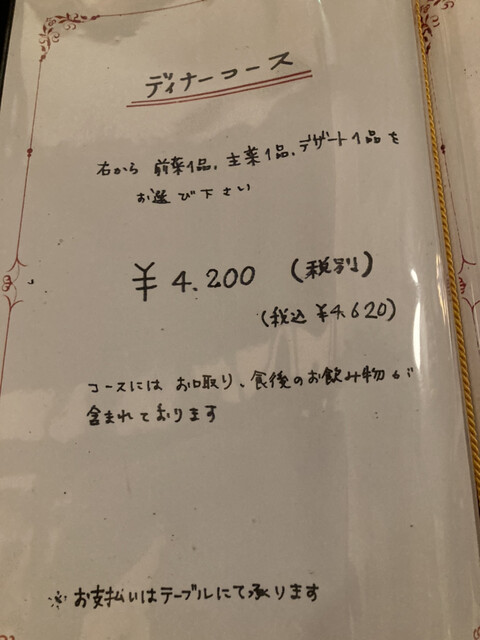 ディナーコース
右から 前菜1品、主菜1品、デザート1品を
お選び下さい
¥4.200 (税別)
(税込 ¥4.620)
コースには お口取り、食後のお飲み物が
含まれております
※お支払いはテーブルにて承ります